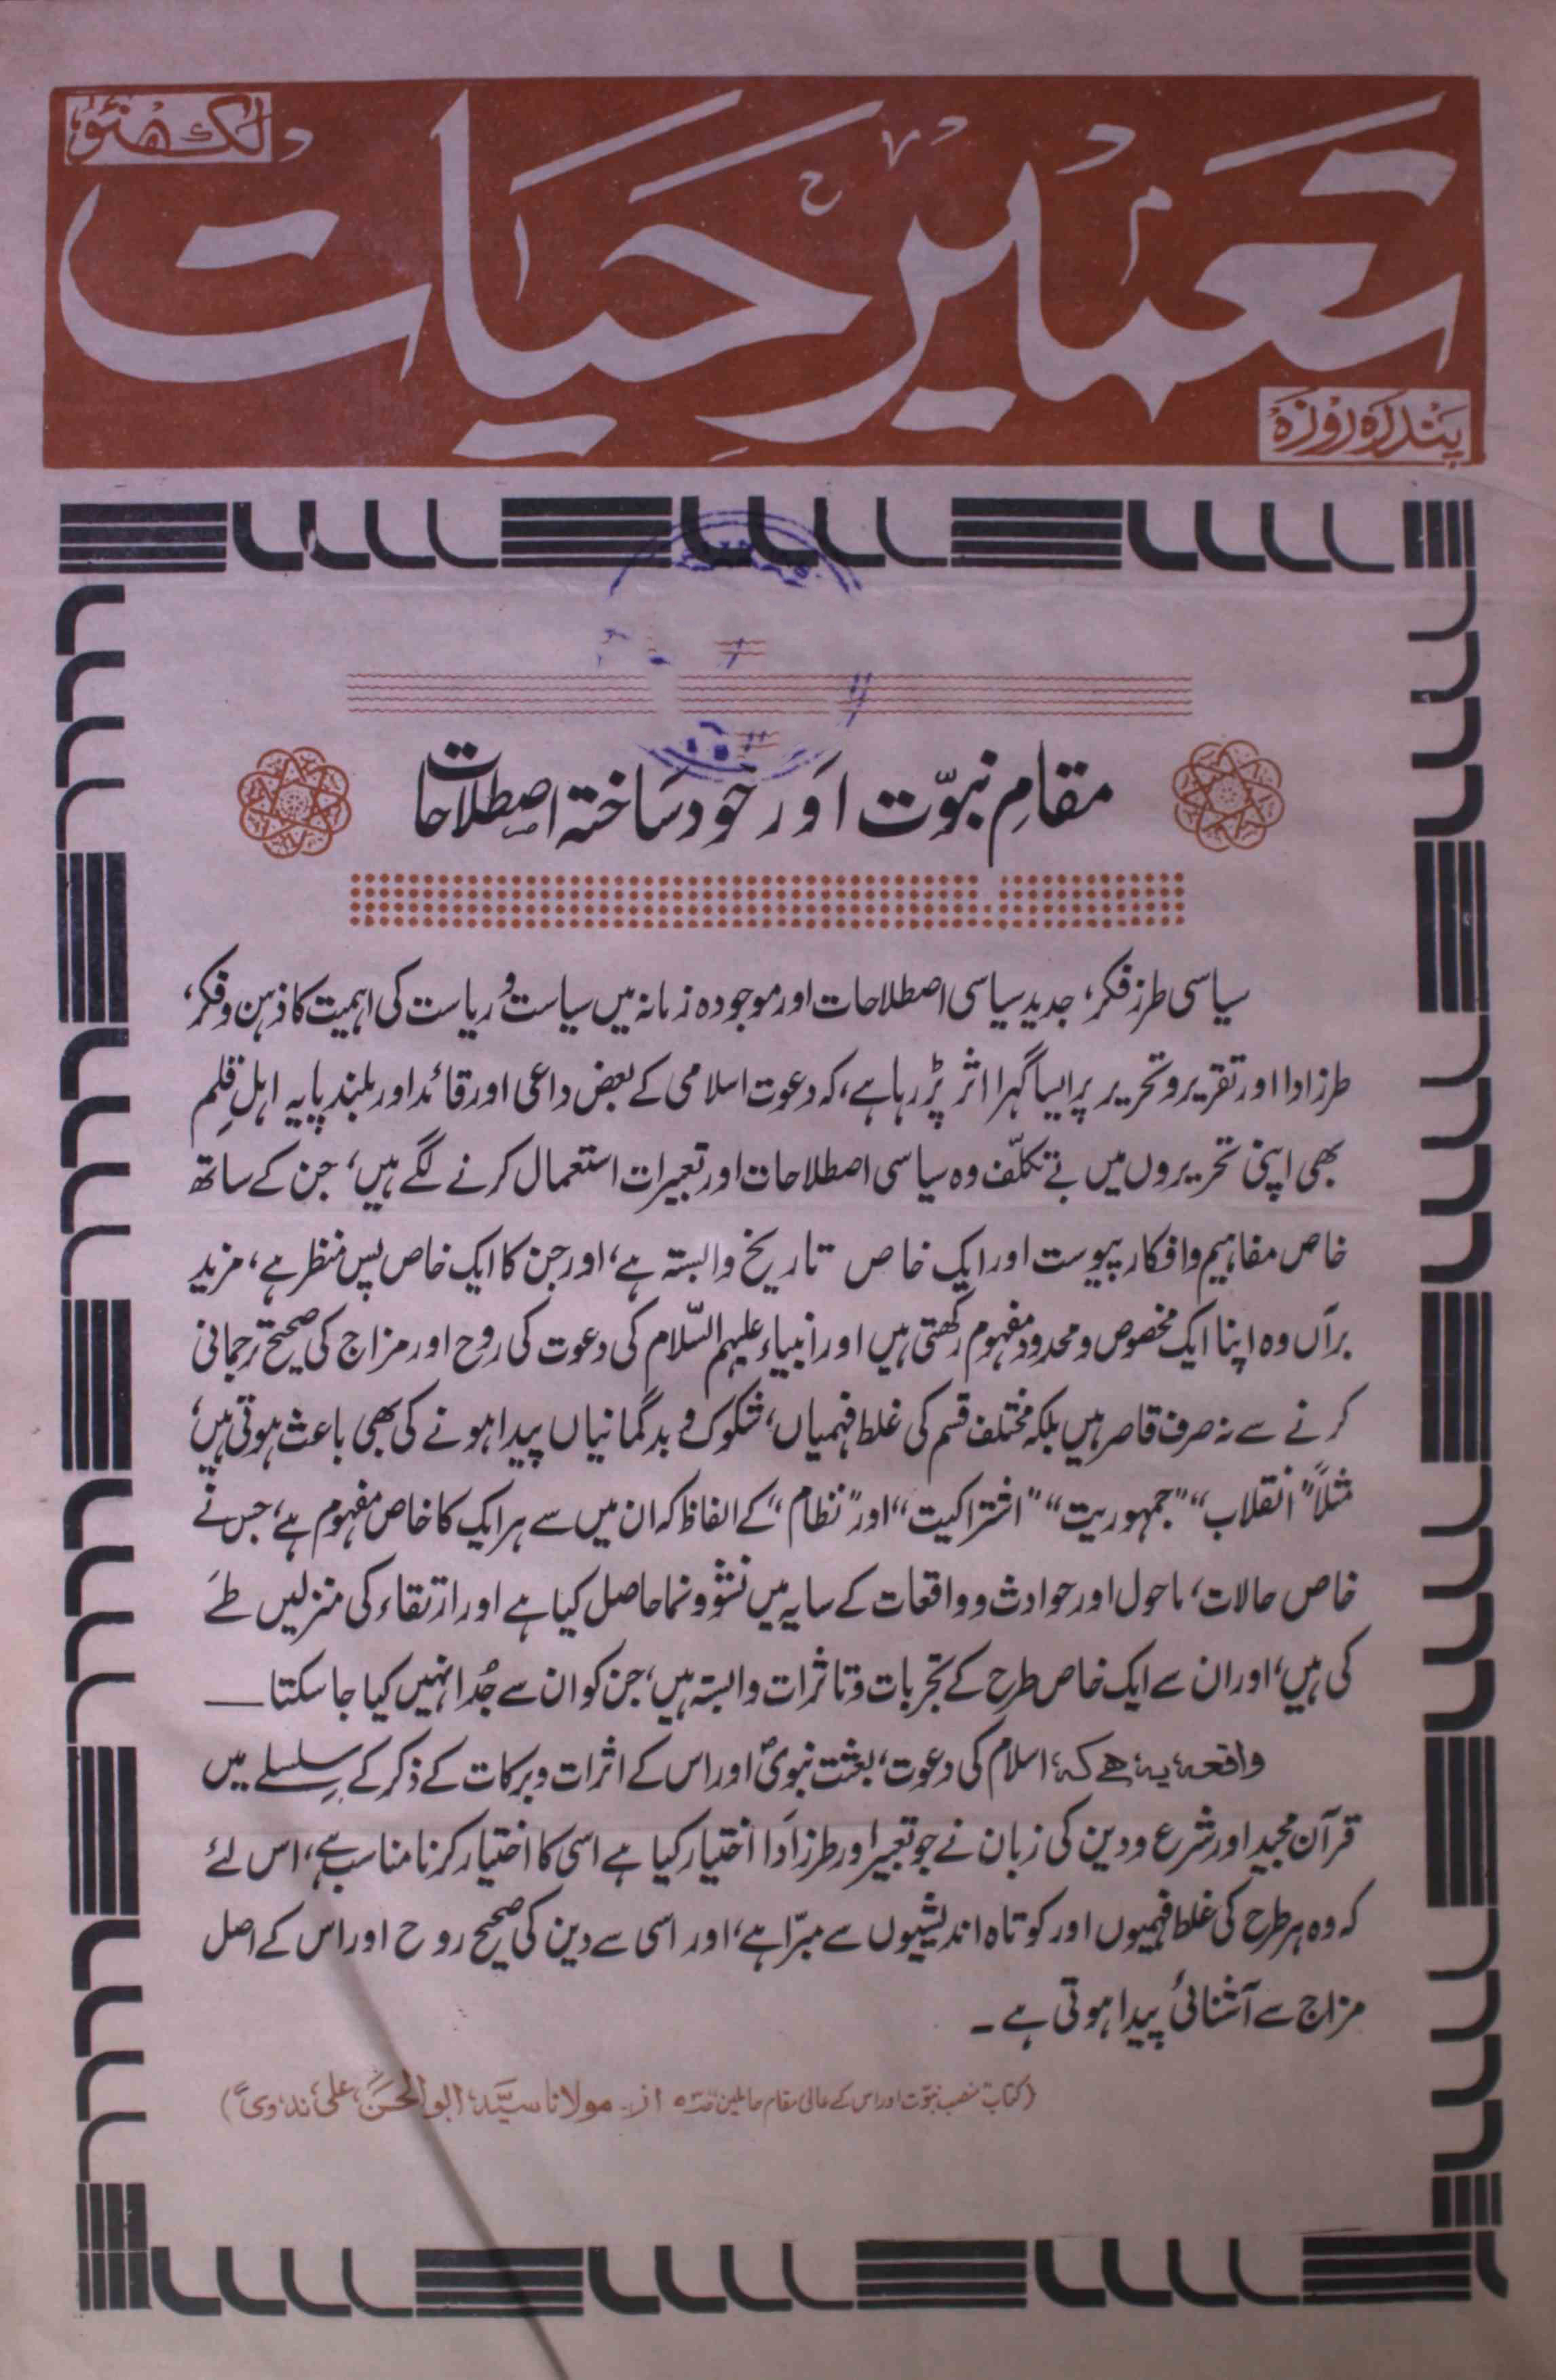 لکھنؤ
تعمیر حیات
پندرہ روزہ
مقامِ نبوّت اور خود ساختہ اصطلاحات
سیاسی طرز فکر، جدید سیاسی اصطلاحات اور موجودہ زمانہ میں سیاست و ریاست کی اہمیت کا ذہن و فکر،
طرز ادا اور تقریر و تحریر پر ایسا گہرا اثر پڑ رہا ہے، کہ دعوت اسلامی کے بعض داعی اور قائد اور بلند پایہ اہلِ قلم
بھی اپنی تحریروں میں بے تکلّف وہ سیاسی اصطلاحات اور تعبیرات استعمال کرنے لگے ہیں، جن کے ساتھ
خاص مفاہیم و افکار پیوست اور ایک خاص تاریخ وابستہ ہے، اور جن کا ایک خاص پس منظر ہے، مزید
برآں وہ اپنا ایک مخصوص و محدود مفہوم رکھتی ہیں اور انبیاء علیہم السّلام کی دعوت کی روح اور مزاج کی صحیح ترجمانی
کرنے سے نہ صرف قاصر ہیں بلکہ مختلف قسم کی غلط فہمیاں، شکوک و بدگمانیاں پیدا ہونے کی بھی باعث ہوتی ہیں،
مثلاً "انقلاب" "جمہوریت" "اشتراکیت" اور "نظام" کے الفاظ کہ ان میں سے ہر ایک کا خاص مفہوم ہے، جس نے
خاص حالات، ماحول اور حوادث و واقعات کے سایہ میں نشو و نما حاصل کیا ہے اور ارتقاء کی منزلیں طے
کی ہیں، اور ان سے ایک خاص طرح کے تجربات و تاثرات وابستہ ہیں، جن کو ان سے جُدا نہیں کیا جا سکتا ــــ
واقعہ یہ ہے کہ اسلام کی دعوت، بعثت نبویؐ اور اس کے اثرات و برکات کے ذکر کے سلسلے میں
قرآن مجید اور شرع و دین کی زبان نے جو تعبیر اور طرز ادا اختیار کیا ہے اسی کا اختیار کرنا مناسب ہے، اس لئے
کہ وہ ہر طرح کی غلط فہمیوں اور کوتاہ اندیشیوں سے مبرّا ہے، اور اسی سے دین کی صحیح روح اور اس کے اصل
مزاج سے آشنائی پیدا ہوتی ہے ۔
(کتاب "منصب نبوّت اور اس کے عالی مقام حاملین" از۔ مولانا سیّد ابو الحسن علی ندویؒ)